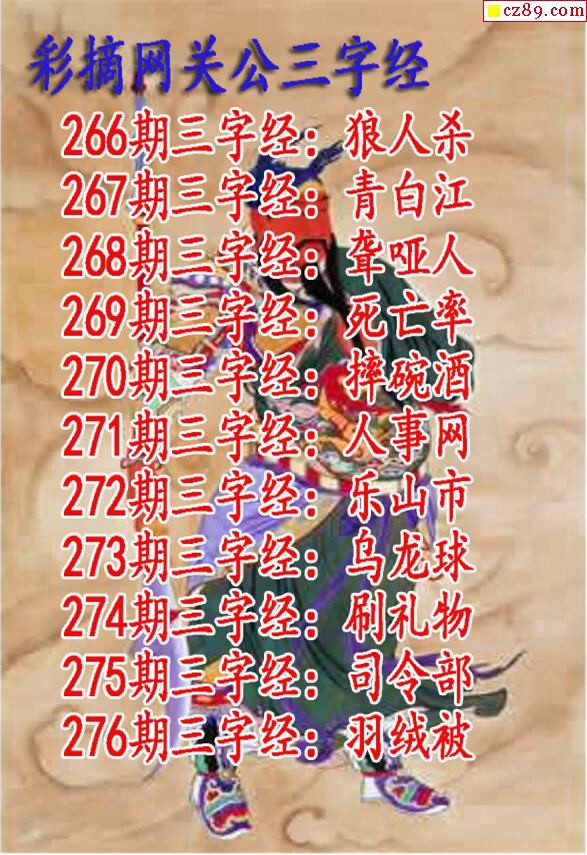 cz89.com
彩摘网关公三字经
266期三字经：狼人杀
267期三字经：青白江
268期三字经：聋哑人
269期三字经：死亡率
270期三字经：摔碗酒
271期三字经：人事网
272期三字经：乐山市
273期三字经：乌龙球
274期三字经：刷礼物
275期三字经：司令部
276期三字经：羽绒被